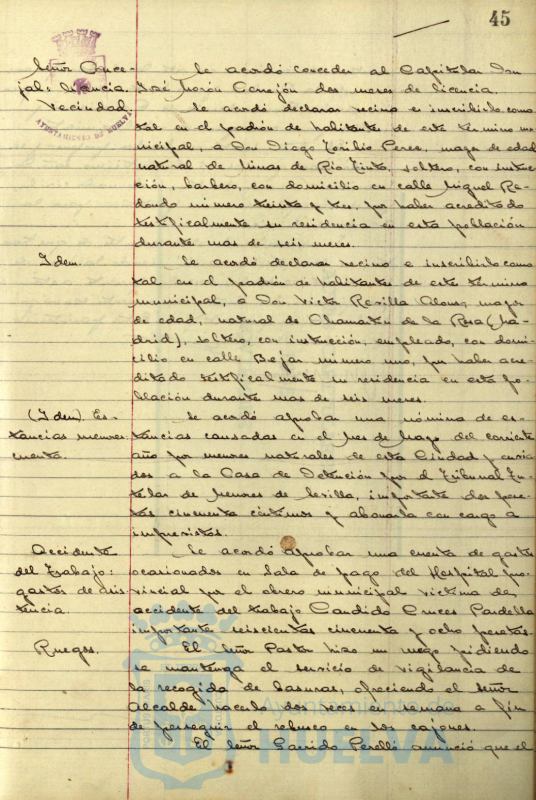 45
Señor Conce-
jal: licencia.
Vecindad.
AYUNTAMIENTO DE HUELVA
Se acordó conceder al Capitular Don
José Morón Cerejón dos meses de licencia.
Se acordó declarar vecino e inscribirlo como
tal en el padrón de habitante de este termino mu-
nicipal, a Don Diego Torilio Perez, mayor de edad
natural de Minas de Rio Tinto, soltero, con instruc-
ción, barbero, con domicilio en calle Miguel Re-
dondo número treinta y tres, por haber acreditado
testificalmente su residencia en esta población
durante mas de seis meses.
Idem.
Se acordó declarar vecino e inscribirlo como
tal en el padrón de habitantes de este término
municipal, a Don Victor Revilla Alonso, mayor
de edad, natural de Chamartin de la Rosa (Ma-
drid), soltero, con instrucción, empleado, con domi-
cilio en calle Bejar número uno, por haber acre-
ditado testificalmente su residencia en esta po-
blación durante mas de seis meses.
(Idem) Es-
tancias menores:
cuenta.
Se acordó aprobar una nómina de es-
tancias causadas en el mes de Mayo del corriente
año por menores naturales de esta Ciudad y envia-
dos a la Casa de Detención por el Tribunal Tu-
telar de Menores de Sevilla, importante dos pese-
tas cincuenta céntimos y abonarla con cargo a
imprevistos.
Accidente
del Trabajo:
gastos de asis-
tencia.
Se acordó aprobar una cuenta de gastos
ocasionados en Sala de pago del Hospital pro-
vincial por el obrero municipal victima de
accidente del trabajo Candido Cruces Pardella
importante seiscientas cincuenta y ocho pesetas.
Ruegos.
El Señor Pastor hizo un ruego pidiendo
se mantenga el servicio de vigilancia de
la recogida de basuras, ofreciendo el señor
Alcalde hacerlo dos veces en semana a fin
de perseguir el rebusco en los cajones.
El Señor Garrido Perelló anunció que el
Ayuntamiento de
HUELVA